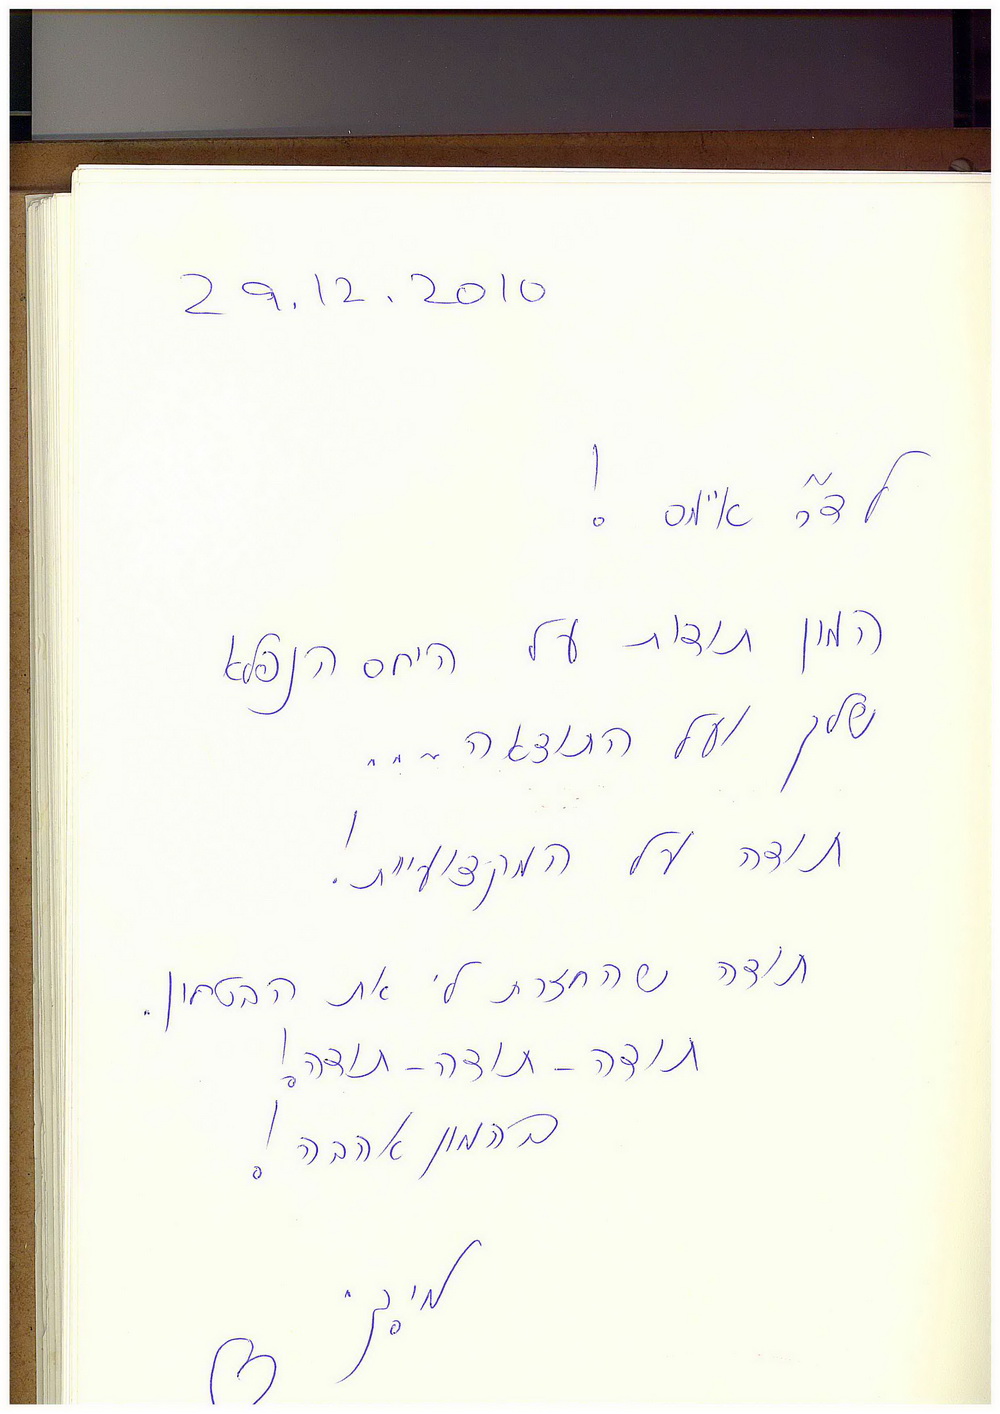 29.12.2010
לד"ר אייס !
המון תודות על היחס הנפלא
שלך ועל התוצאה....
תודה על המקצועיות!
תודה שהחזרת לי את הבטחון.
תודה - תודה - תודה!
בהמון אהבה!